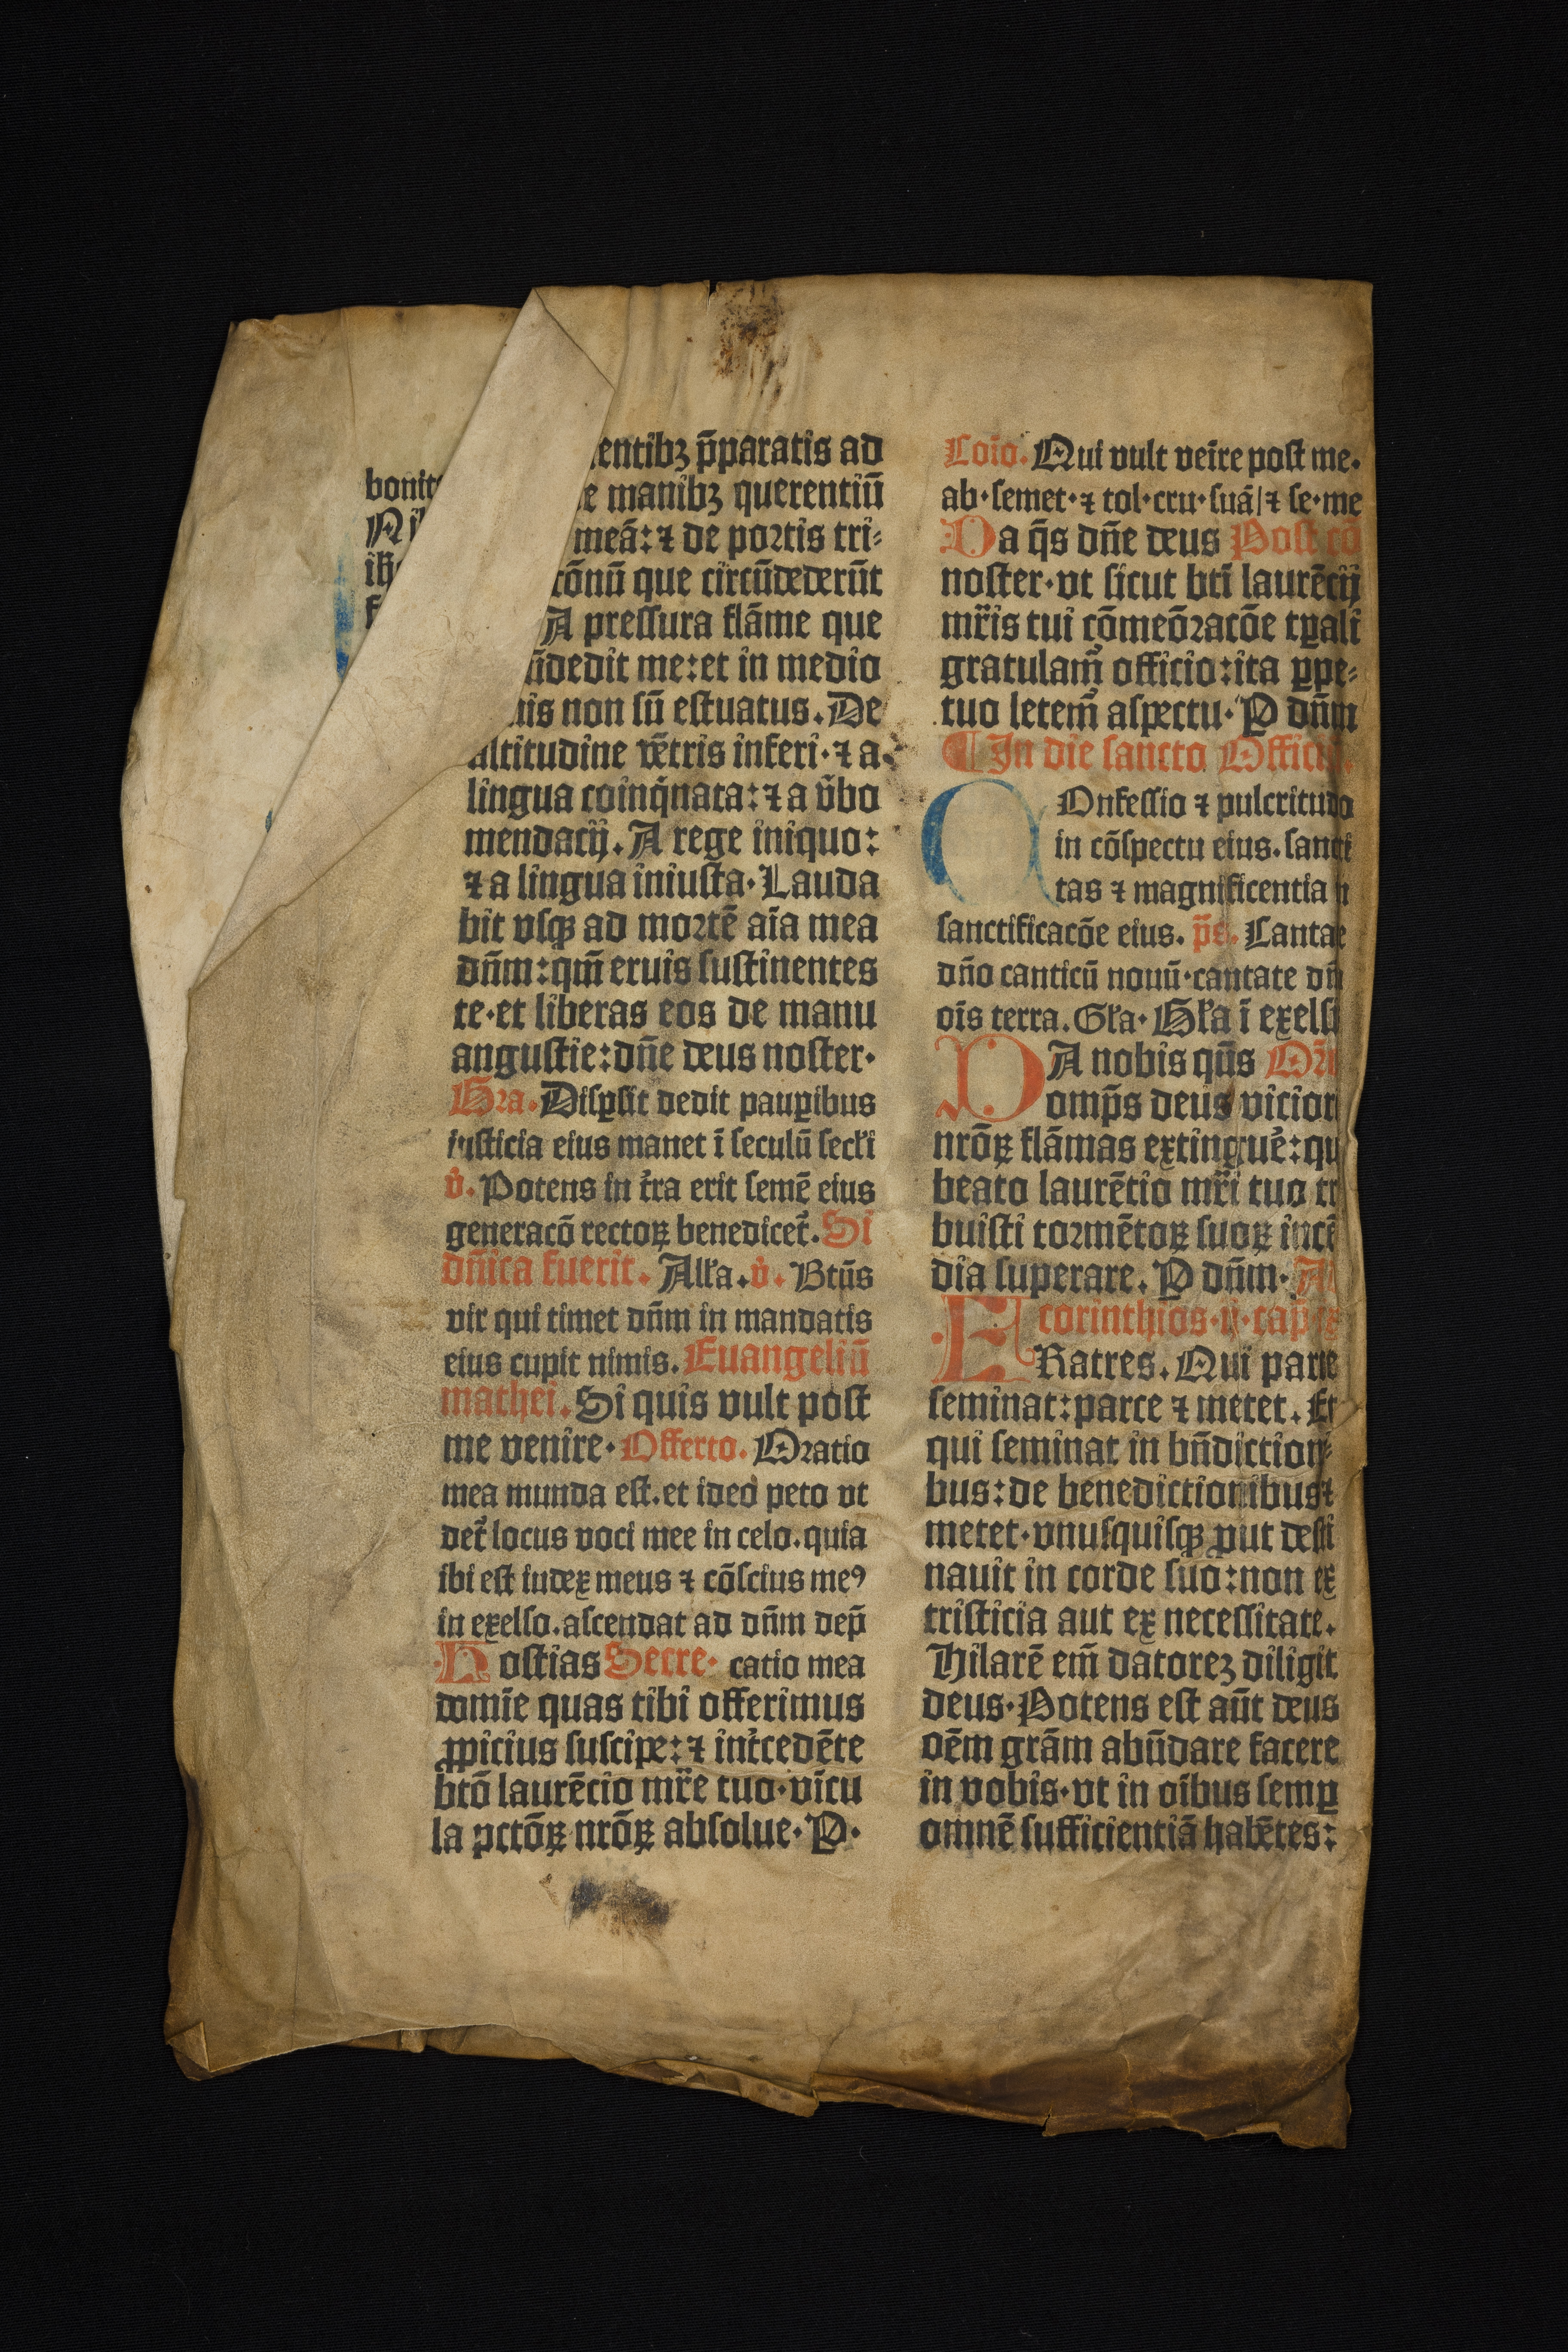 bonit
entibꝫ p̄paratis ad
e manibꝫ querentiū
meā: ⁊ de portis tri-
cōnū que circūdederūt
A pressura flāme que
ūdedit me: et in medio
nis non sū estuatus. De
altitudine vētris inferi · ⁊ a
lingua coinq̇nata: ⁊ a v̓bo
mendacij. A rege iniquo:
⁊ a lingua iniusta · Lauda
bit vsqꝫ ad mortē aīa mea
dn̄m: qm̄ eruis sustinentes
te · et liberas eos de manu
angustie: dn̄e deus noster ·
Gra. Disꝑsit dedit pauꝑibus
iusticia eius manet ī seculū secl̓i
v̓. Potens in t̓ra erit semē eius
generacō rectoꝝ benedicet᷑. Si
dn̄ica fuerit. All̓a. v̓. Btūs
vir qui timet dn̄m in mandatis
eius cupit nimis. Euangeliū
mathei. Si quis vult post
me venire · Offerto. Oratio
mea munda est. et ideo peto vt
det᷑ locus voci mee in celo. quia
ibi est iudex meus ⁊ cōscius meꝰ
in exelso. ascendat ad dn̄m dep̄
Hostias Secre · catio mea
domīe quas tibi offerimus
ꝓpicius suscipe: ⁊ int̓cedēte
btō laurēcio mr̄e tuo · vīcu
la pctōꝝ nrōꝝ absolue · P ·
Coīo. Qui vult veīre post me.
ab · semet · ⁊ tol · cru · suā / ⁊ se · me
Da q̄s dn̄e deus Post cō
noster · vt sicut btī laurēcij
mr̄is tui cōmeōracōe tꝑali
gratulam᷑ officio: ita ꝑpe-
tuo letem᷑ aspectu · P dn̄m
¶ In die sancto Officiū.
COnfessio ⁊ pulcritudo
in cōspectu eius. sancti
tas ⁊ magnificentia
sanctificacōe eius. p̄s. Cantate
dn̄o canticū nouū · cantate dn̄
oīs terra. Gl̓a · Gl̓a ī exelsi
DA nobis qn̄s Or̄
omp̄s deus vicior
nrōꝝ flāmas extingue᷑: qu
beato laurētio mr̄i tuo tr
buisti tormētoꝝ suoꝝ incē
dia superare. P dn̄m ·
corinthios · ij · cap̄
FRatres. Qui parce
seminat: parce ⁊ metet. Et
qui seminat in bn̄diction-
bus: de benedictionibus ⁊
metet · vnusquisqꝫ ꝓut desti
nauit in corde suo: non ex
tristicia aut ex necessitate.
Hilarē em̄ datoreꝫ diligit
deus · Potens est aūt deus
oēm grām abūdare facere
in vobis · vt in oībus semꝑ
omnē sufficientiā habētes: